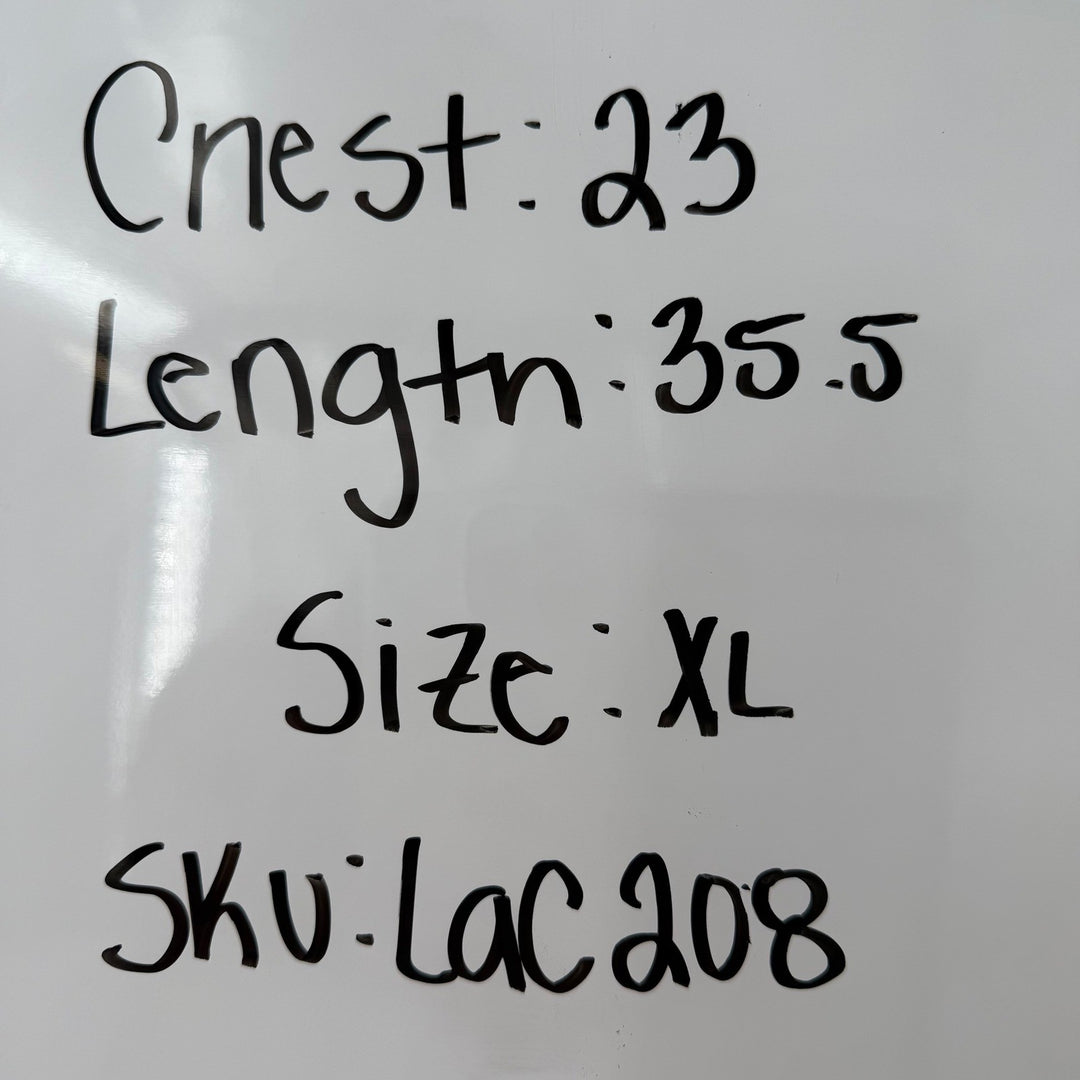 Chest: 23
Length: 35.5
Size: XL
SKU: LaC208